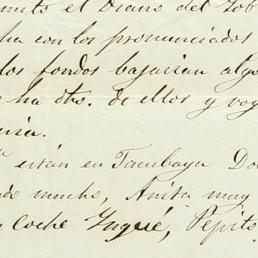 el Diario del Gob
ha con los pronunciados
los fondos bajarian algo
ha dho. de ellos y voy
están en Tacubaya Do
mucho, Anita muy
Coche Yngué, Pepito